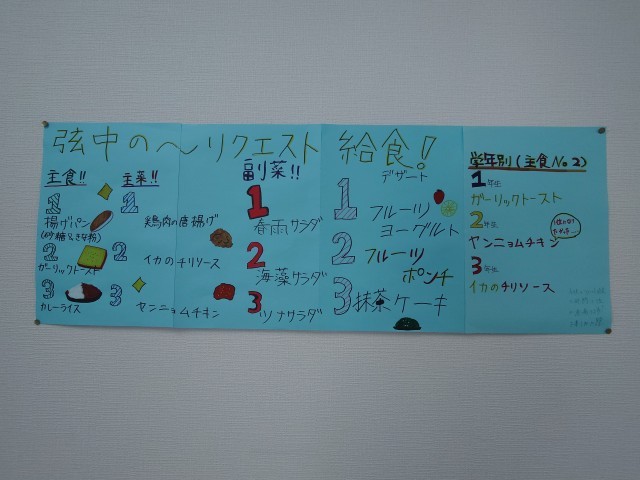 弦中の〜リクエスト給食!
主食!!
1
揚げパン
(砂糖&きな粉)
2
ガーリックトースト
3
カレーライス
主菜!!
1
鶏肉の唐揚げ
2
イカのチリソース
3
ヤンニョムチキン
副菜!!
1
春雨サラダ
2
海藻サラダ
3
ツナサラダ
デザート
1
フルーツ
ヨーグルト
2
フルーツ
ポンチ
3
抹茶ケーキ
学年別(主食No.2)
1年生
ガーリックトースト
2年生
ヤンニョムチキン
3年生
イカのチリソース